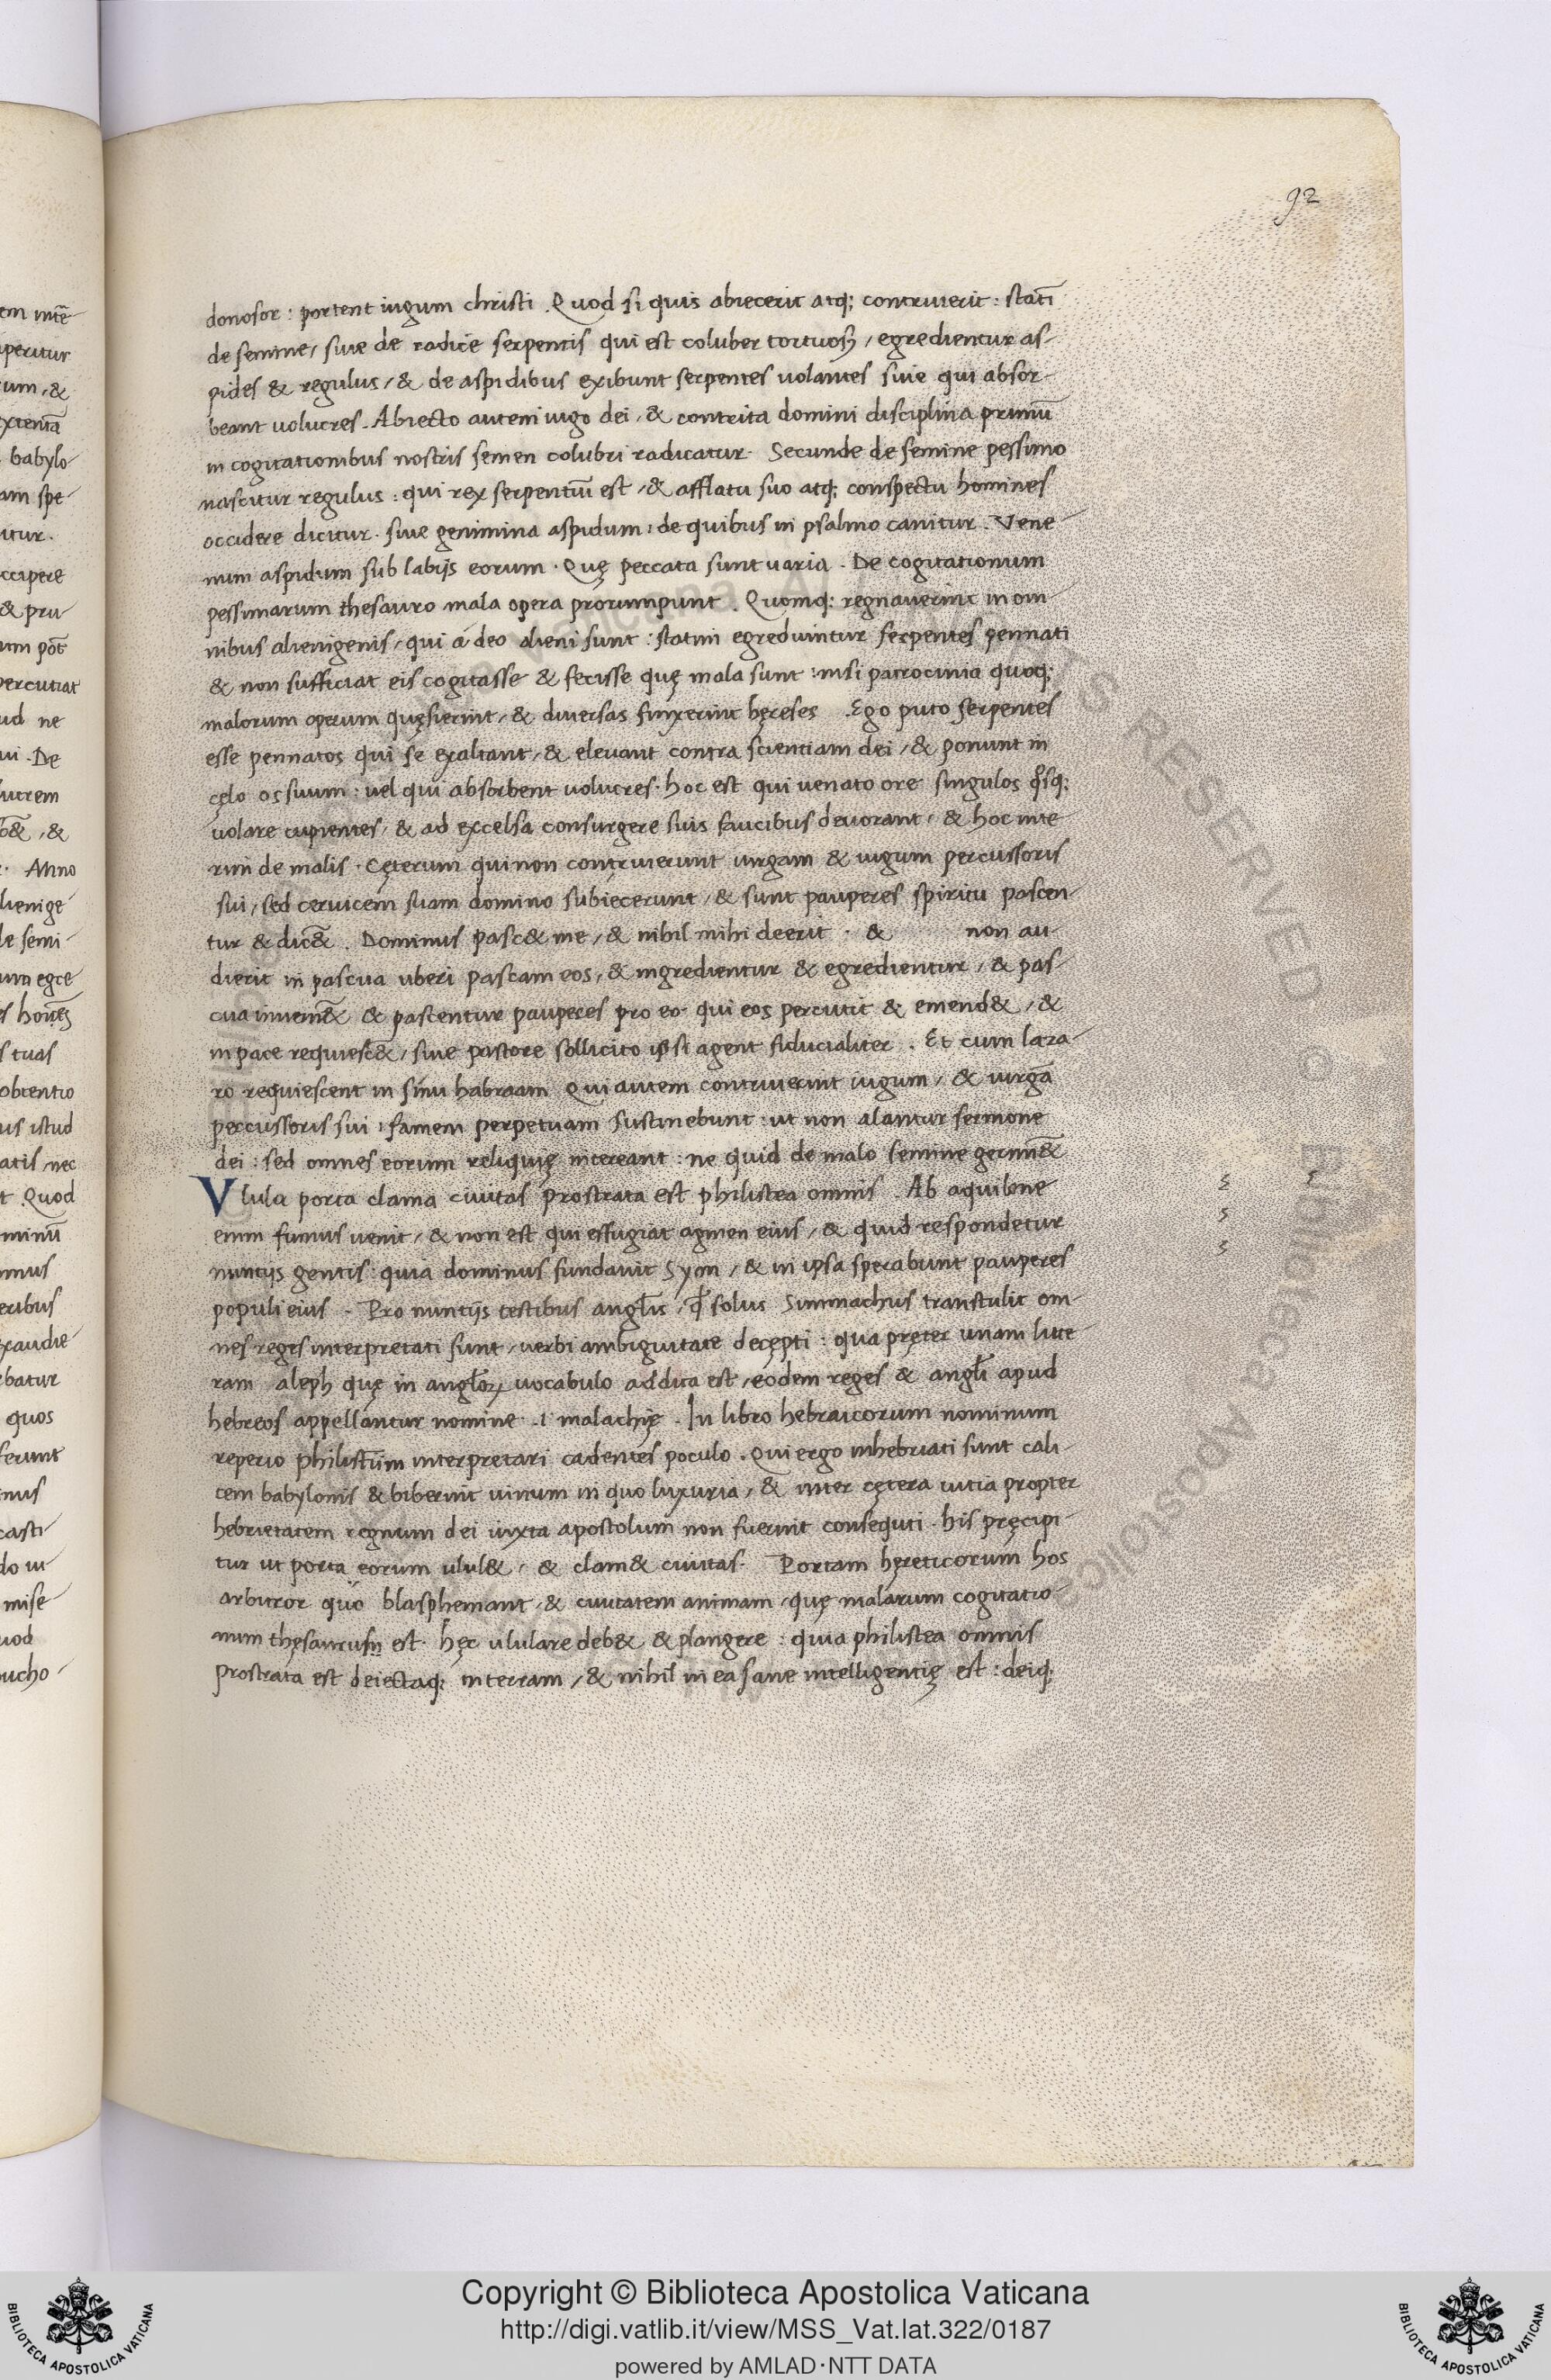 92
donosor : portent iugum christi . Quod si quis abiecerit atq; contriuerit : statī
de semine / siue de radice serpentis qui est coluber tortuosꝰ / egredientur as-
pides & regulus / & de aspidibus exibunt serpentes uolantes siue qui absor-
beant uolucres . Abiecto autem iugo dei / & contrita domini disciplina primū
in cogitationibus nostris semen colubri radicatur . Secunde de semine pessimo
nascitur regulus : qui rex serpentiū est / & afflatu suo atq; conspectu homines
occidere dicitur . siue genimina aspidum : de quibus in psalmo canitur . Vene-
num aspidum sub labijs eorum . Quę peccata sunt uaria . De cogitationum
pessimarum thesauro mala opera prorumpunt . Quomq; regnauerint in om-
nibus alienigenis / qui á deo alieni sunt : statim egrediuintur serpentes pennati
& non sufficiat eis cogitasse & fecisse quę mala sunt : nisi patrocinia quoq;
malorum operum quęsierint / & diuersas finxerint hęreses . Ego puto serpentes
esse pennatos qui se exaltant / & eleuant contra scientiam dei / & ponunt in
cęlo os suum : uel qui absorbent uolucres . hoc est qui uenato ore singulos qͦsq;
uolare cupientes / & ad excelsa consurgere suis faucibus deuorant / & hoc inte-
rim de malis . Cęterum qui non contriuerunt uirgam & iugum percussoris
sui / sed ceruicem suam domino subiecerunt / & sunt pauperes spiritu pascen-
tur & dic&̄ . Dominus pasc& me / & nihil mihi deerit . & non au-
dierit in pascua uberi pascam eos / & ingredientur & egredientur / & pas-
cua inueni&̄ & pascentur pauperes pro eo . qui eos percutit & emend& / &
in pace requiesc&̄ / siue pastore sollicito ipsi agent fiducialiter . Et cum laza-
ro requiescent in sinu habraam Qui autem contriuerint iugum / & uirgā
percussoris sui : famem perpetuam sustinebunt : ut non alantur sermone
dei : sed omnes eorum reliquię intereant : ne quid de malo semine germin&̄
Vlula porta clama ciuitas prostrata est philistea omnis . Ab aquilone
enim fumus uenit / & non est qui effugiat agmen eius / & quid respondetur
nuntijs gentis : quia dominus fundauit Syon / & in ipsa sperabunt pauperes
populi eius . Pro nuntijs testibus angl̄is / qđ solus Simmachus transtulit om-
nes reges interpretati sunt / uerbi ambiguitate decępti : qua pręter unam litte-
ram aleph quę in angl̄oꝝ uocabulo addita est / eodem reges & angl̄i apud
hebreos appellantur nomine . i malachię . In libro hebraicorum nominum
reperio philistiim interpretari cadentes poculo . Qui ergo inhebriati sunt cali-
cem babylonis & biberint uinum in quo luxuria / & inter cętera uitia propter
hebrietatem regnum dei iuxta apostolum non fuerint consequti . his pręcipi-
tur ut porta eorum ulul& / & clam& ciuitas . Portam hęreticorum hos
arbitror quo blasphemant / & ciuitatem animam / quę malarum cogitatio-
num thesaurum est . hęc ululare deb& & plangere : quia philistea omnis
prostrata est deiectaq; in terram / & nihil in ea sane intelligentię est : deiq;
Copyright © Biblioteca Apostolica Vaticana
http://digi.vatlib.it/view/MSS_Vat.lat.322/0187
powered by AMLAD·NTT DATA
BIBLIOTECA APOSTOLICA VATICANA
BIBLIOTECA APOSTOLICA VATICANA